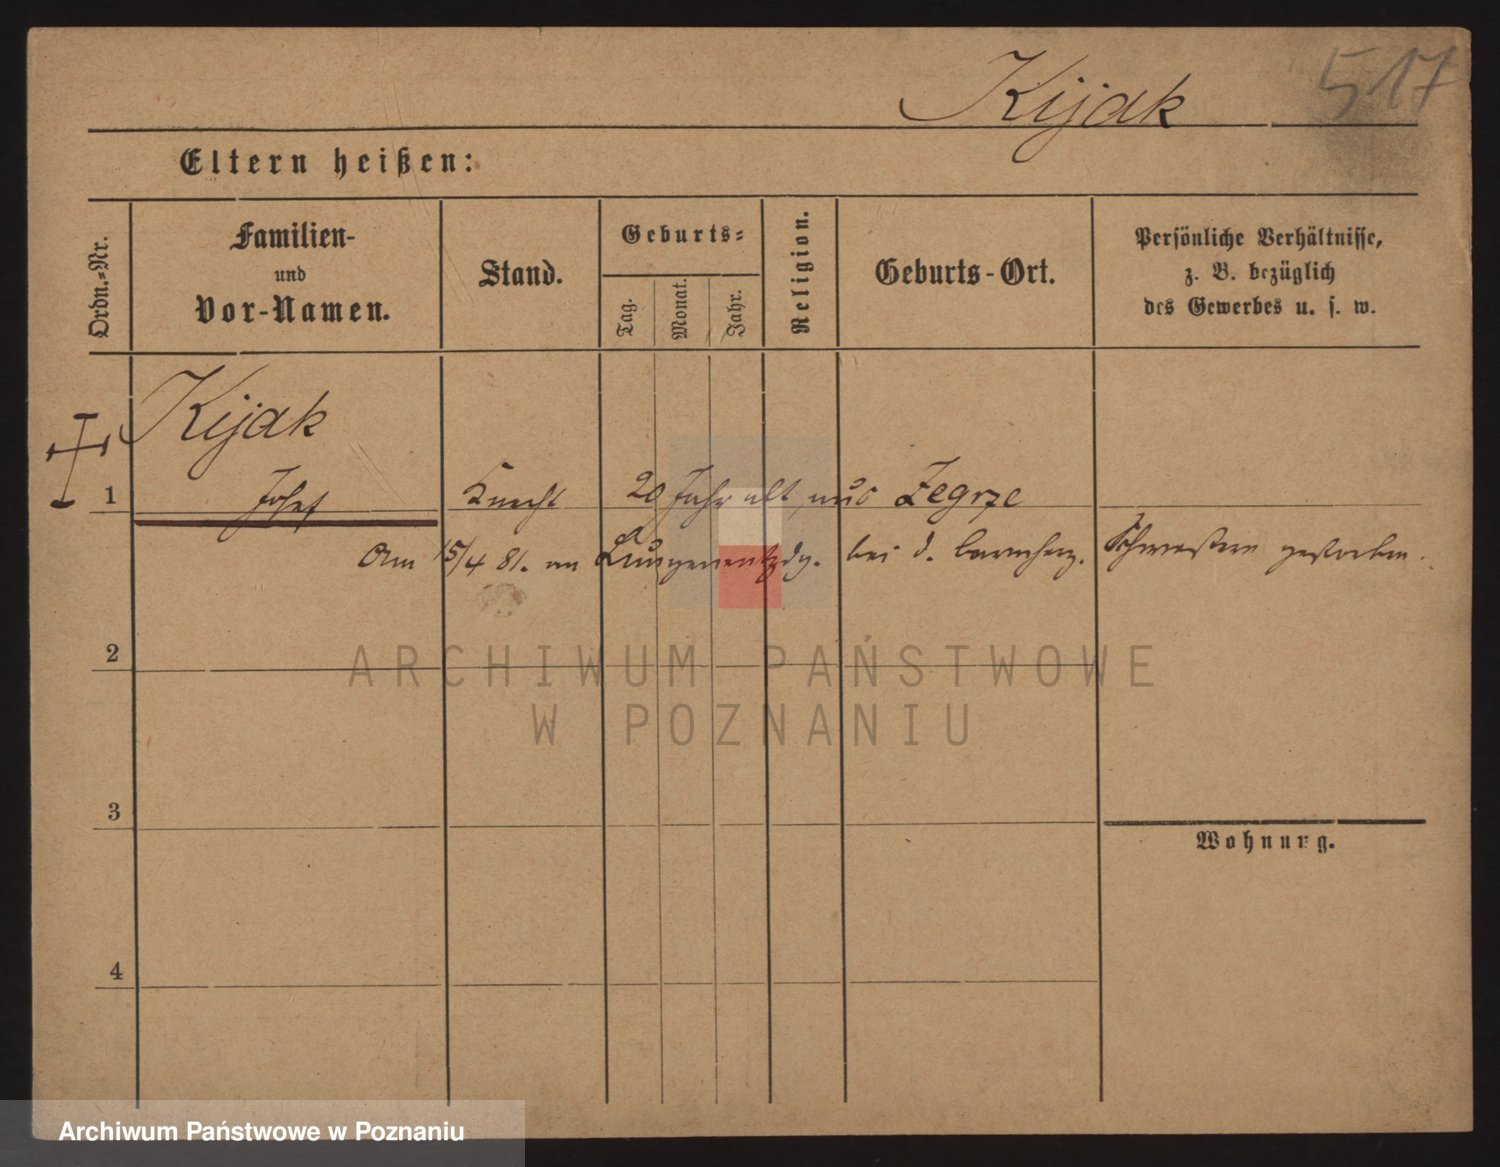 Kijak
517
Eltern heißen:
Ordn.-Nr.
Familien-
und
Vor-Namen.
Stand.
Geburts-
Tag.
Monat.
Jahr.
Religion.
Geburts-Ort.
Persönliche Verhältnisse,
z. B. bezüglich
des Gewerbes u. s. w.
Kijak
1 Josef Knecht 20 Jahr alt aus Zegrze
Am 15/4 81. an Lungenentzdg. bei d. barmherz. Schwestern gestorben.
2
ARCHIWUM PAŃSTWOWE
W POZNANIU
3
Wohnung.
4
Archiwum Państwowe w Poznaniu